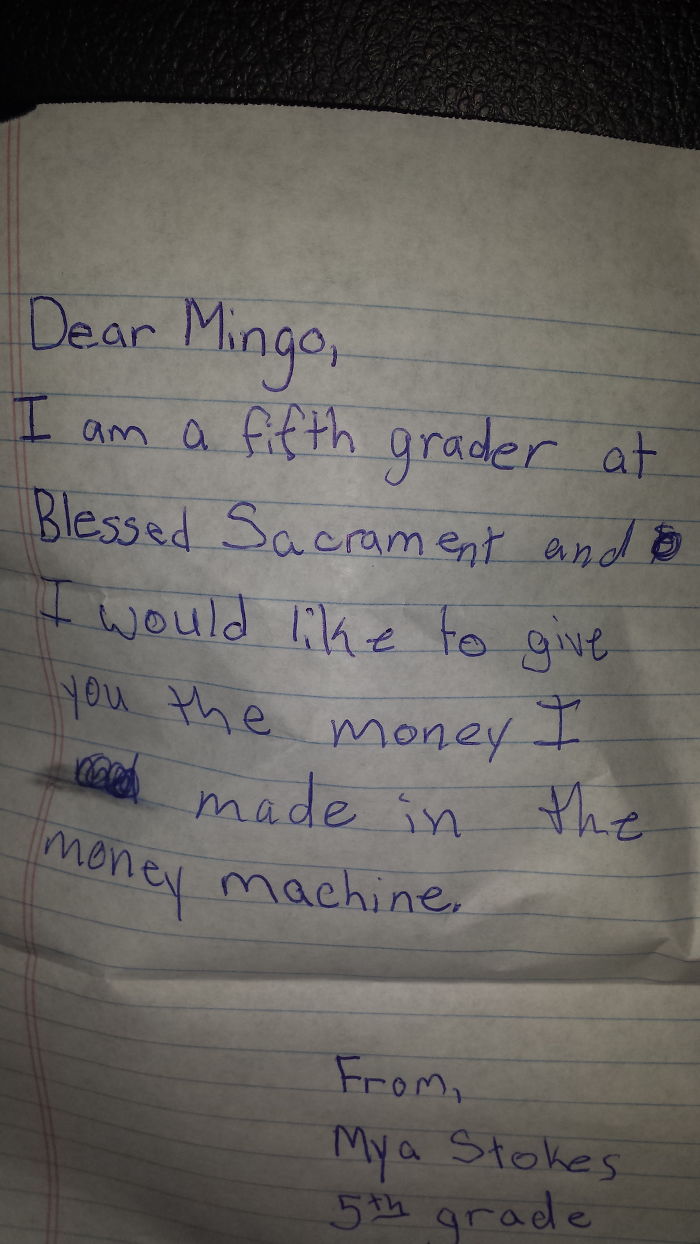 Dear Mingo,
I am a fifth grader at
Blessed Sacrament and
I would like to give
you the money I
made in the
money machine.
From,
Mya Stokes
5th grade